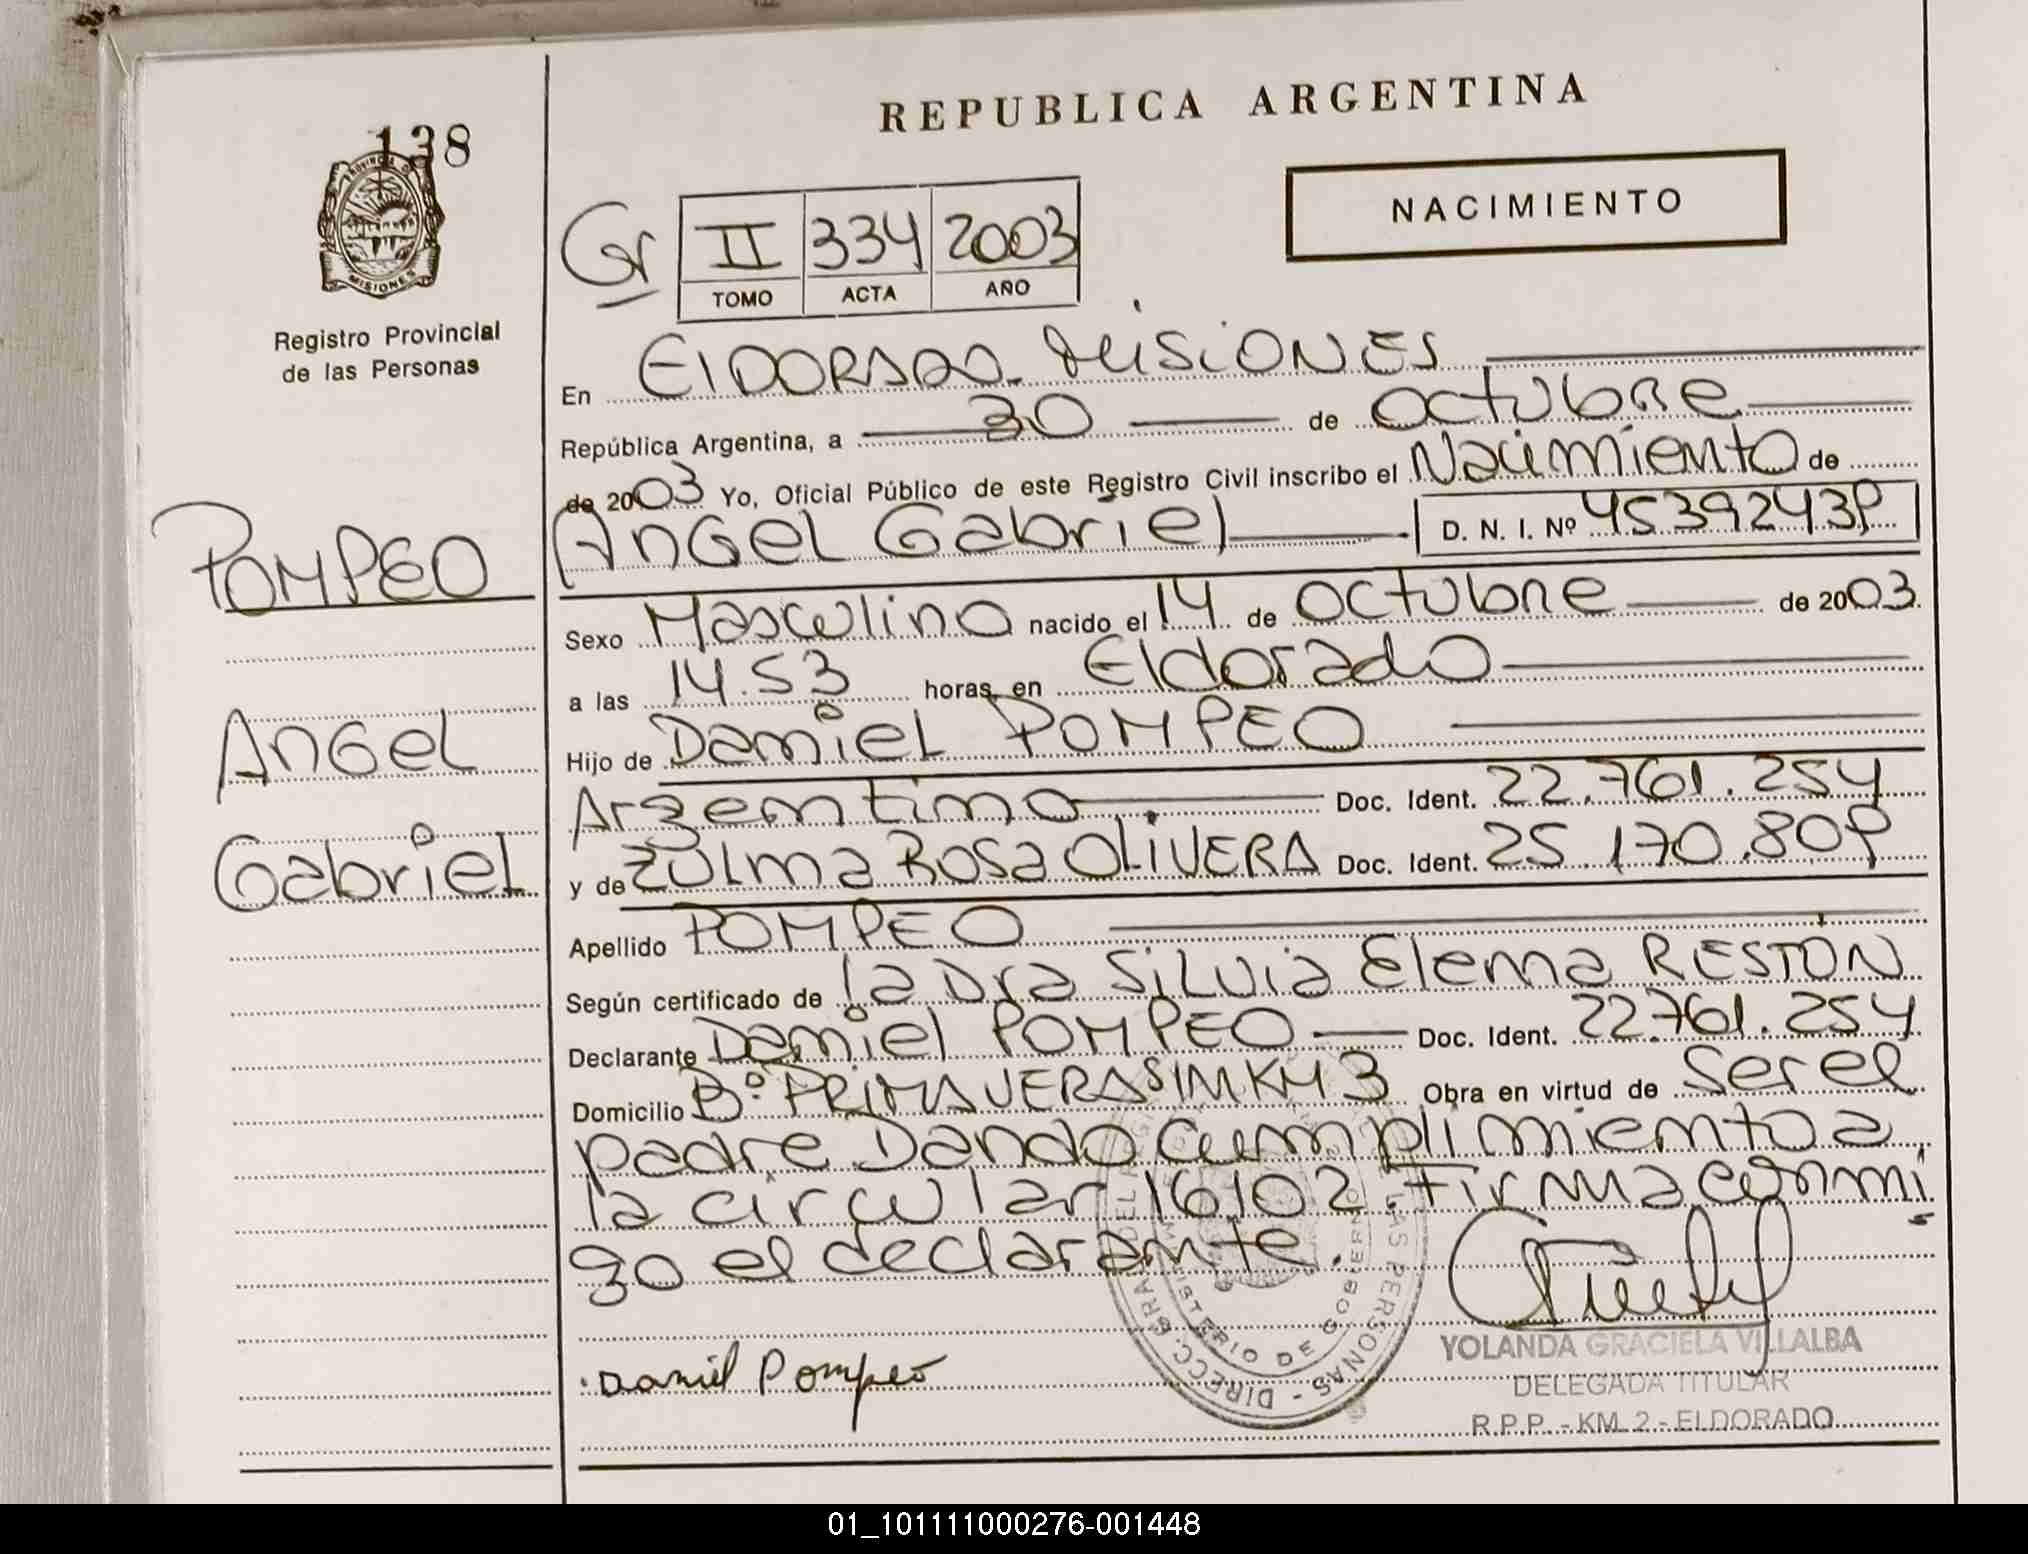 138
PROVINCIA DE
MISIONES
Registro Provincial
de las Personas
POMPEO
Angel
Gabriel
REPUBLICA ARGENTINA
NACIMIENTO
Gr II 334 2003
TOMO ACTA AÑO
En ElDORADO - MISIONES
República Argentina, a 30 de octubre
de 2003 Yo, Oficial Público de este Registro Civil inscribo el Nacimiento de
Angel Gabriel D. N. I. Nº 45392439
Sexo Masculino nacido el 14 de octubre de 2003.
a las 14.53 horas, en Eldorado
Hijo de Daniel POMPEO
Argentino Doc. Ident. 22.761.254
y de Zulma Rosa OLIVERA Doc. Ident. 25.170.809
Apellido POMPEO
Según certificado de la Dra Silvia Elena RESTON
Declarante Daniel POMPEO Doc. Ident. 22.761.254
Domicilio Bº PRIMAVERA S/N KM 3 Obra en virtud de Ser el
padre Dando cumplimiento a
la circular 16/02. Firma conmi
go el declarante.
Daniel Pompeo
MINISTERIO DE GOBIERNO
YOLANDA GRACIELA VILLALBA
DELEGADA TITULAR
R.P.P. - KM. 2 - ELDORADO
01_101111000276-001448